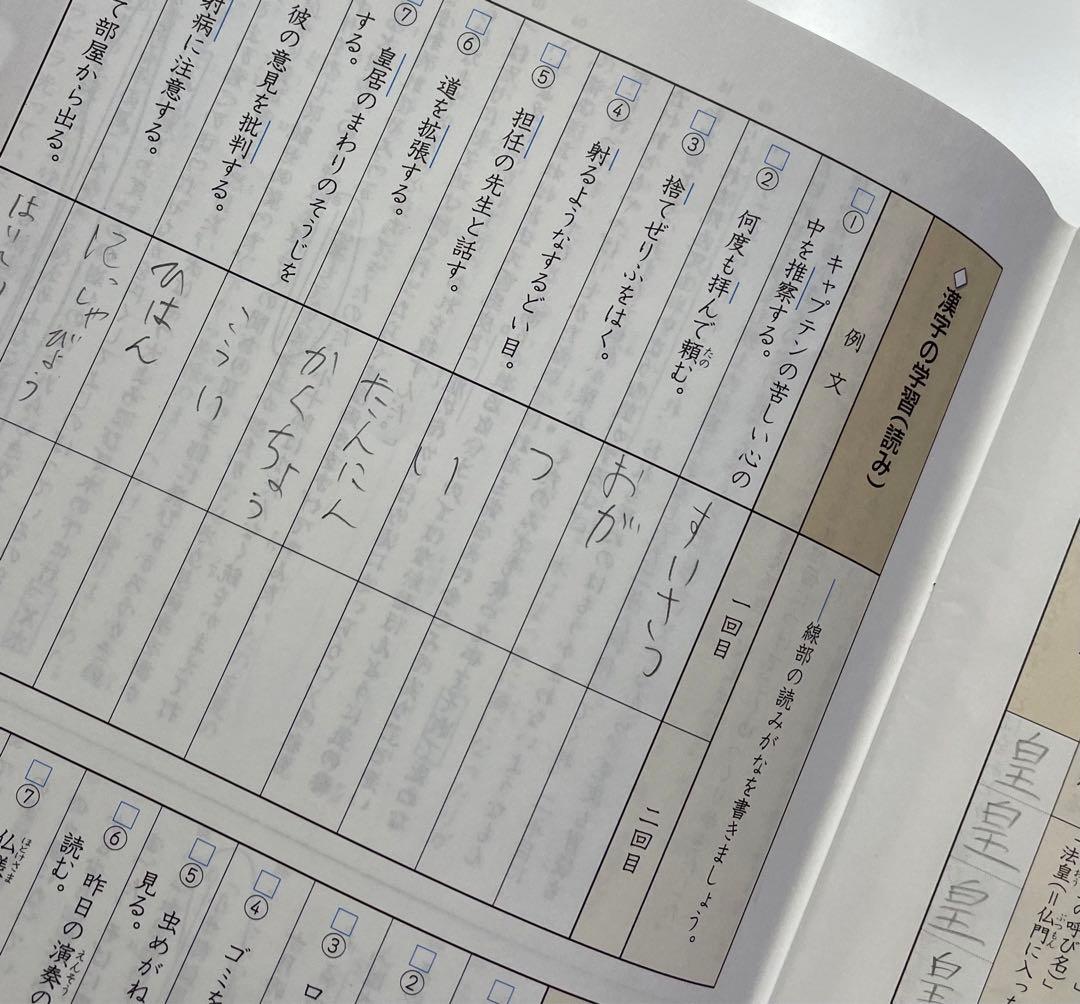 ◇漢字の学習(読み)
例文
——線部の読みがなを書きましょう。
一回目
二回目
① キャプテンの苦しい心の
中を推察する。
すいさつ
② 何度も拝んで頼む。
たの
おが
③ 捨てぜりふをはく。
つ
④ 射るようなするどい目。
い
⑤ 担任の先生と話す。
たんにん
⑥ 道を拡張する。
かくちょう
⑦ 皇居のまわりのそうじを
する。
こうい
彼の意見を批判する。
ひはん
射病に注意する。
にっしゃびょう
て部屋から出る。
②
③ ロ
④ ゴミを
⑤ 虫めがね
見る。
⑥ 昨日の演奏の
えんそう
読む。
⑦ 仏様
ほとけさま
皇
皇
皇
皇
の呼び名)」
法皇(=仏門に入っ
ぶつもん